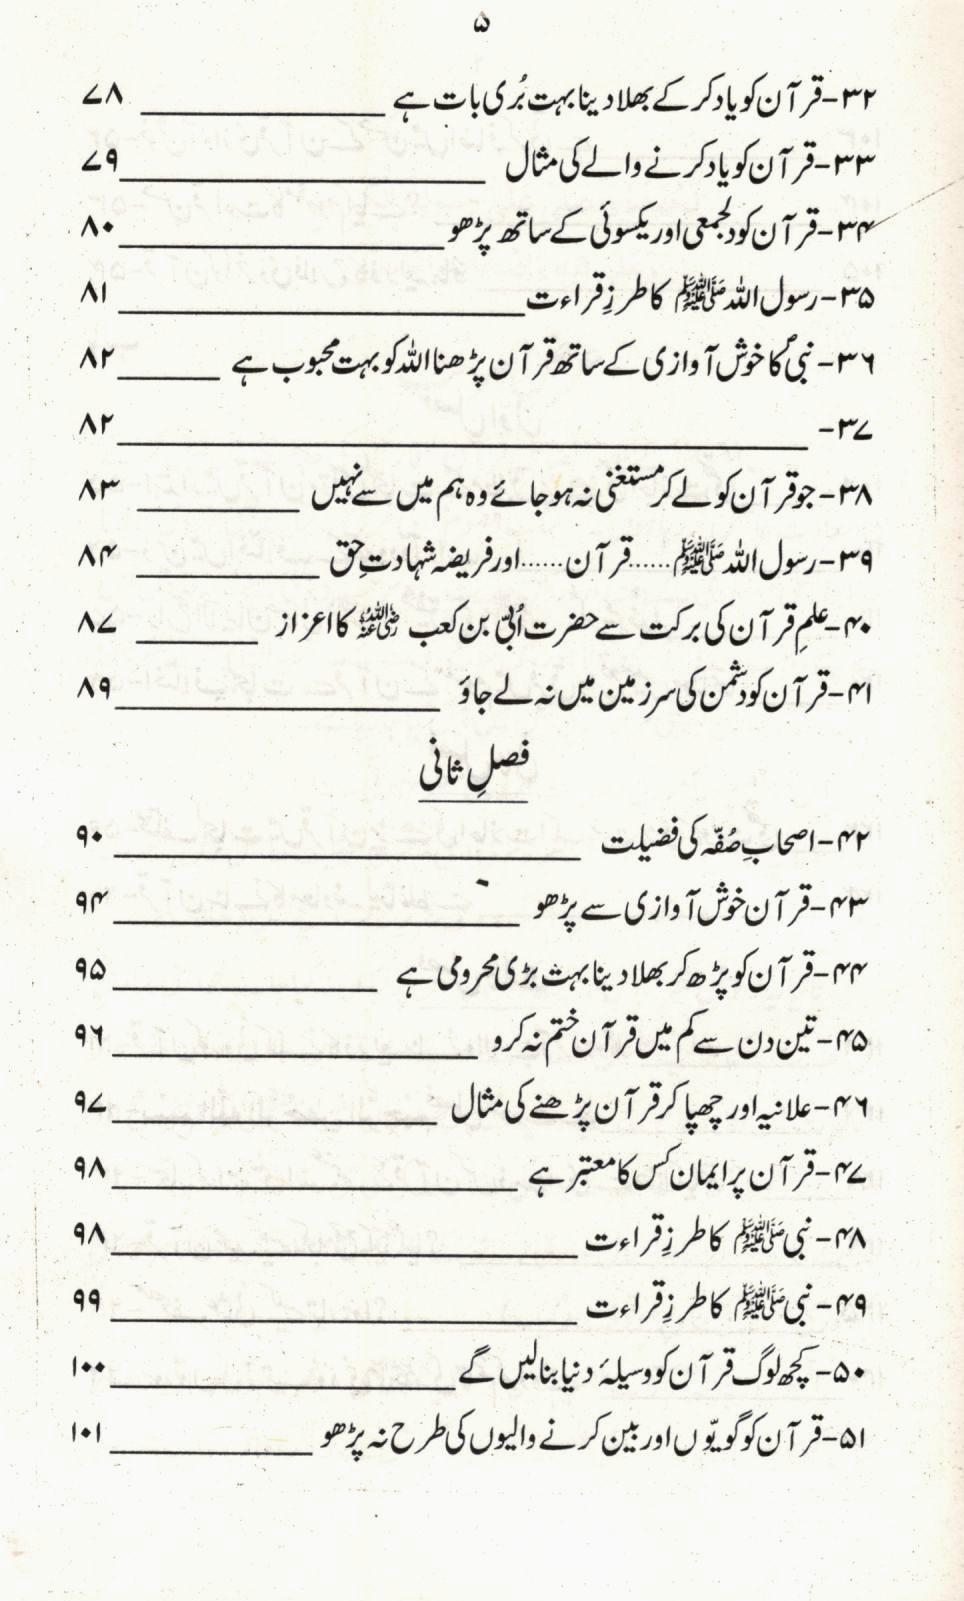 ۵
۳۲-قرآن کو یاد کر کے بھلا دینا بہت بُری بات ہے ۷۸
۳۳-قرآن کو یاد کرنے والے کی مثال ۷۹
۳۴-قرآن کو دلجمعی اور یکسوئی کے ساتھ پڑھو ۸۰
۳۵-رسول اللہ ﷺ کا طرزِ قراءت ۸۱
۳۶-نبیؐ کا خوش آوازی کے ساتھ قرآن پڑھنا اللہ کو بہت محبوب ہے ۸۲
۳۷- ۸۲
۳۸-جو قرآن کو لے کر مستغنی نہ ہو جائے وہ ہم میں سے نہیں ۸۳
۳۹-رسول اللہ ﷺ......قرآن......اور فریضہ شہادتِ حق ۸۴
۴۰-علمِ قرآن کی برکت سے حضرت اُبیّ بن کعب رضی اللہ عنہ کا اعزاز ۸۷
۴۱-قرآن کو دشمن کی سرزمین میں نہ لے جاؤ ۸۹
فصلِ ثانی
۴۲-اصحابِ صُفّہ کی فضیلت ۹۰
۴۳-قرآن خوش آوازی سے پڑھو ۹۴
۴۴-قرآن کو پڑھ کر بھلا دینا بہت بڑی محرومی ہے ۹۵
۴۵-تین دن سے کم میں قرآن ختم نہ کرو ۹۶
۴۶-علانیہ اور چھپا کر قرآن پڑھنے کی مثال ۹۷
۴۷-قرآن پر ایمان کس کا معتبر ہے ۹۸
۴۸-نبی ﷺ کا طرزِ قراءت ۹۸
۴۹-نبی ﷺ کا طرزِ قراءت ۹۹
۵۰-کچھ لوگ قرآن کو وسیلۂ دنیا بنا لیں گے ۱۰۰
۵۱-قرآن کو گویّوں اور بین کرنے والیوں کی طرح نہ پڑھو ۱۰۱